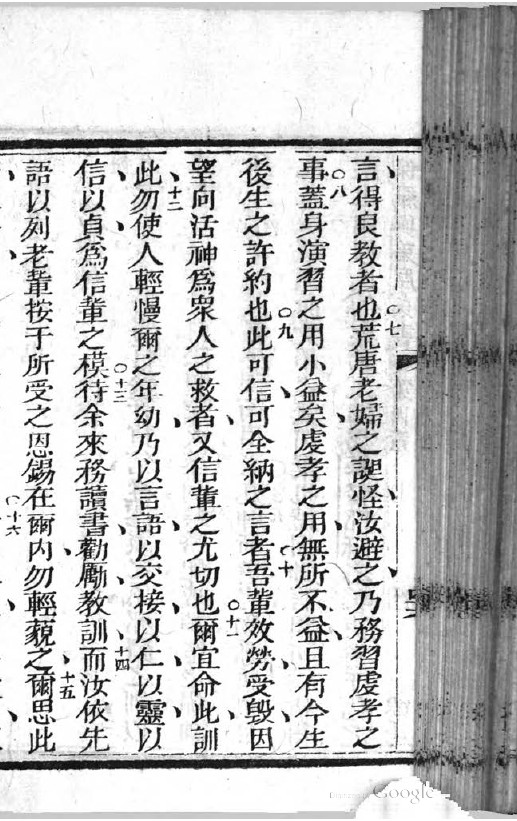 言得良教者也○七荒唐老婦之誕怪汝避之乃務習虔孝之
事○八蓋身演習之用小益矣虔孝之用無所不益且有今生
後生之許約也○九此可信可全納之言者○十吾輩效勞受毀因
望向活神爲衆人之救者又信輩之尤切也○十一爾宜命此訓
此○十二勿使人輕慢爾之年幼乃以言語以交接以仁以靈以
信以貞爲信輩之模○十三待余來務讀書勸勵教訓○十四而汝依先
語以列老輩按于所受之恩錫在爾內勿輕藐之○十五爾思此
○十六
Google